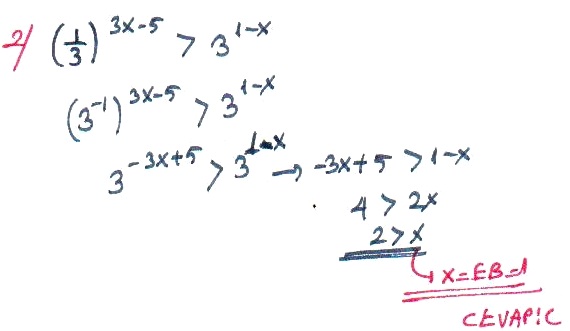 2) (1/3)^(3x-5) > 3^(1-x)
(3^-1)^(3x-5) > 3^(1-x)
3^(-3x+5) > 3^(1-x) → -3x+5 > 1-x
4 > 2x
2 > x
↳ x=EB=1
CEVAP:C